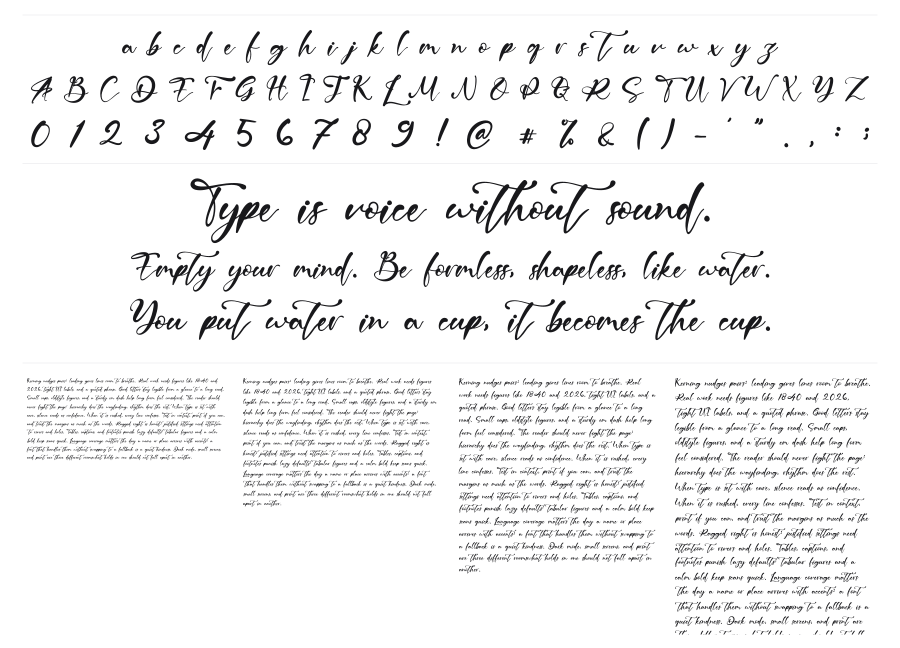 a b c d e f g h i j k l m n o p q r s t u v w x y z
A B C D E F G H I J K L M N O P Q R S T U V W X Y Z
0 1 2 3 4 5 6 7 8 9 ! @ # % & ( ) - ' " . , : ;
Type is voice without sound.
Empty your mind. Be formless, shapeless, like water.
You put water in a cup, it becomes the cup.
Kerning nudges pairs; leading gives lines room to breathe. Real work needs figures like 18:40 and
2026, tight UI labels, and a quoted phrase. Good letters stay legible from a glance to a long read.
Small caps, oldstyle figures, and a sturdy en dash help long form feel considered. The reader should
never fight the page; hierarchy does the wayfinding, rhythm does the rest. When type is set with
care, silence reads as confidence. When it is rushed, every line confesses. Test in context,
print if you can, and treat the margins as much as the words. Ragged right is honest; justified settings need attention
to rivers and holes. Tables, captions, and footnotes punish lazy defaults; tabular figures and a calm
bold keep scans quick. Language coverage matters the day a name or place arrives with accents; a
font that handles them without swapping to a fallback is a quiet kindness. Dark mode, small screens
and print are three different rooms; what holds in one should not fall apart in another.
Kerning nudges pairs; leading gives lines room to breathe. Real work needs figures
like 18:40 and 2026, tight UI labels, and a quoted phrase. Good letters stay
legible from a glance to a long read. Small caps, oldstyle figures, and a sturdy en
dash help long form feel considered. The reader should never fight the page;
hierarchy does the wayfinding, rhythm does the rest. When type is set with care,
silence reads as confidence. When it is rushed, every line confesses. Test in context,
print if you can, and treat the margins as much as the words. Ragged right is
honest; justified settings need attention to rivers and holes. Tables, captions, and
footnotes punish lazy defaults; tabular figures and a calm bold keep scans quick.
Language coverage matters the day a name or place arrives with accents; a font
that handles them without swapping to a fallback is a quiet kindness. Dark mode,
small screens, and print are three different rooms; what holds in one should not fall
apart in another.
Kerning nudges pairs; leading gives lines room to breathe. Real
work needs figures like 18:40 and 2026, tight UI labels, and a
quoted phrase. Good letters stay legible from a glance to a long
read. Small caps, oldstyle figures, and a sturdy en dash help long
form feel considered. The reader should never fight the page;
hierarchy does the wayfinding, rhythm does the rest. When type is
set with care, silence reads as confidence. When it is rushed, every
line confesses. Test in context, print if you can, and treat the
margins as much as the words. Ragged right is honest; justified
settings need attention to rivers and holes. Tables, captions, and
footnotes punish lazy defaults; tabular figures and a calm bold keep
scans quick. Language coverage matters the day a name or place
arrives with accents; a font that handles them without swapping to
a fallback is a quiet kindness. Dark mode, small screens, and print
are three different rooms; what holds in one should not fall apart in
another.
Kerning nudges pairs; leading gives lines room to breathe.
Real work needs figures like 18:40 and 2026,
tight UI labels, and a quoted phrase. Good letters stay
legible from a glance to a long read. Small caps,
oldstyle figures, and a sturdy en dash help long form
feel considered. The reader should never fight the page;
hierarchy does the wayfinding, rhythm does the rest.
When type is set with care, silence reads as confidence.
When it is rushed, every line confesses. Test in context,
print if you can, and treat the margins as much as the
words. Ragged right is honest; justified settings need
attention to rivers and holes. Tables, captions, and
footnotes punish lazy defaults; tabular figures and a
calm bold keep scans quick. Language coverage matters
the day a name or place arrives with accents; a font
that handles them without swapping to a fallback is a
quiet kindness. Dark mode, small screens, and print are